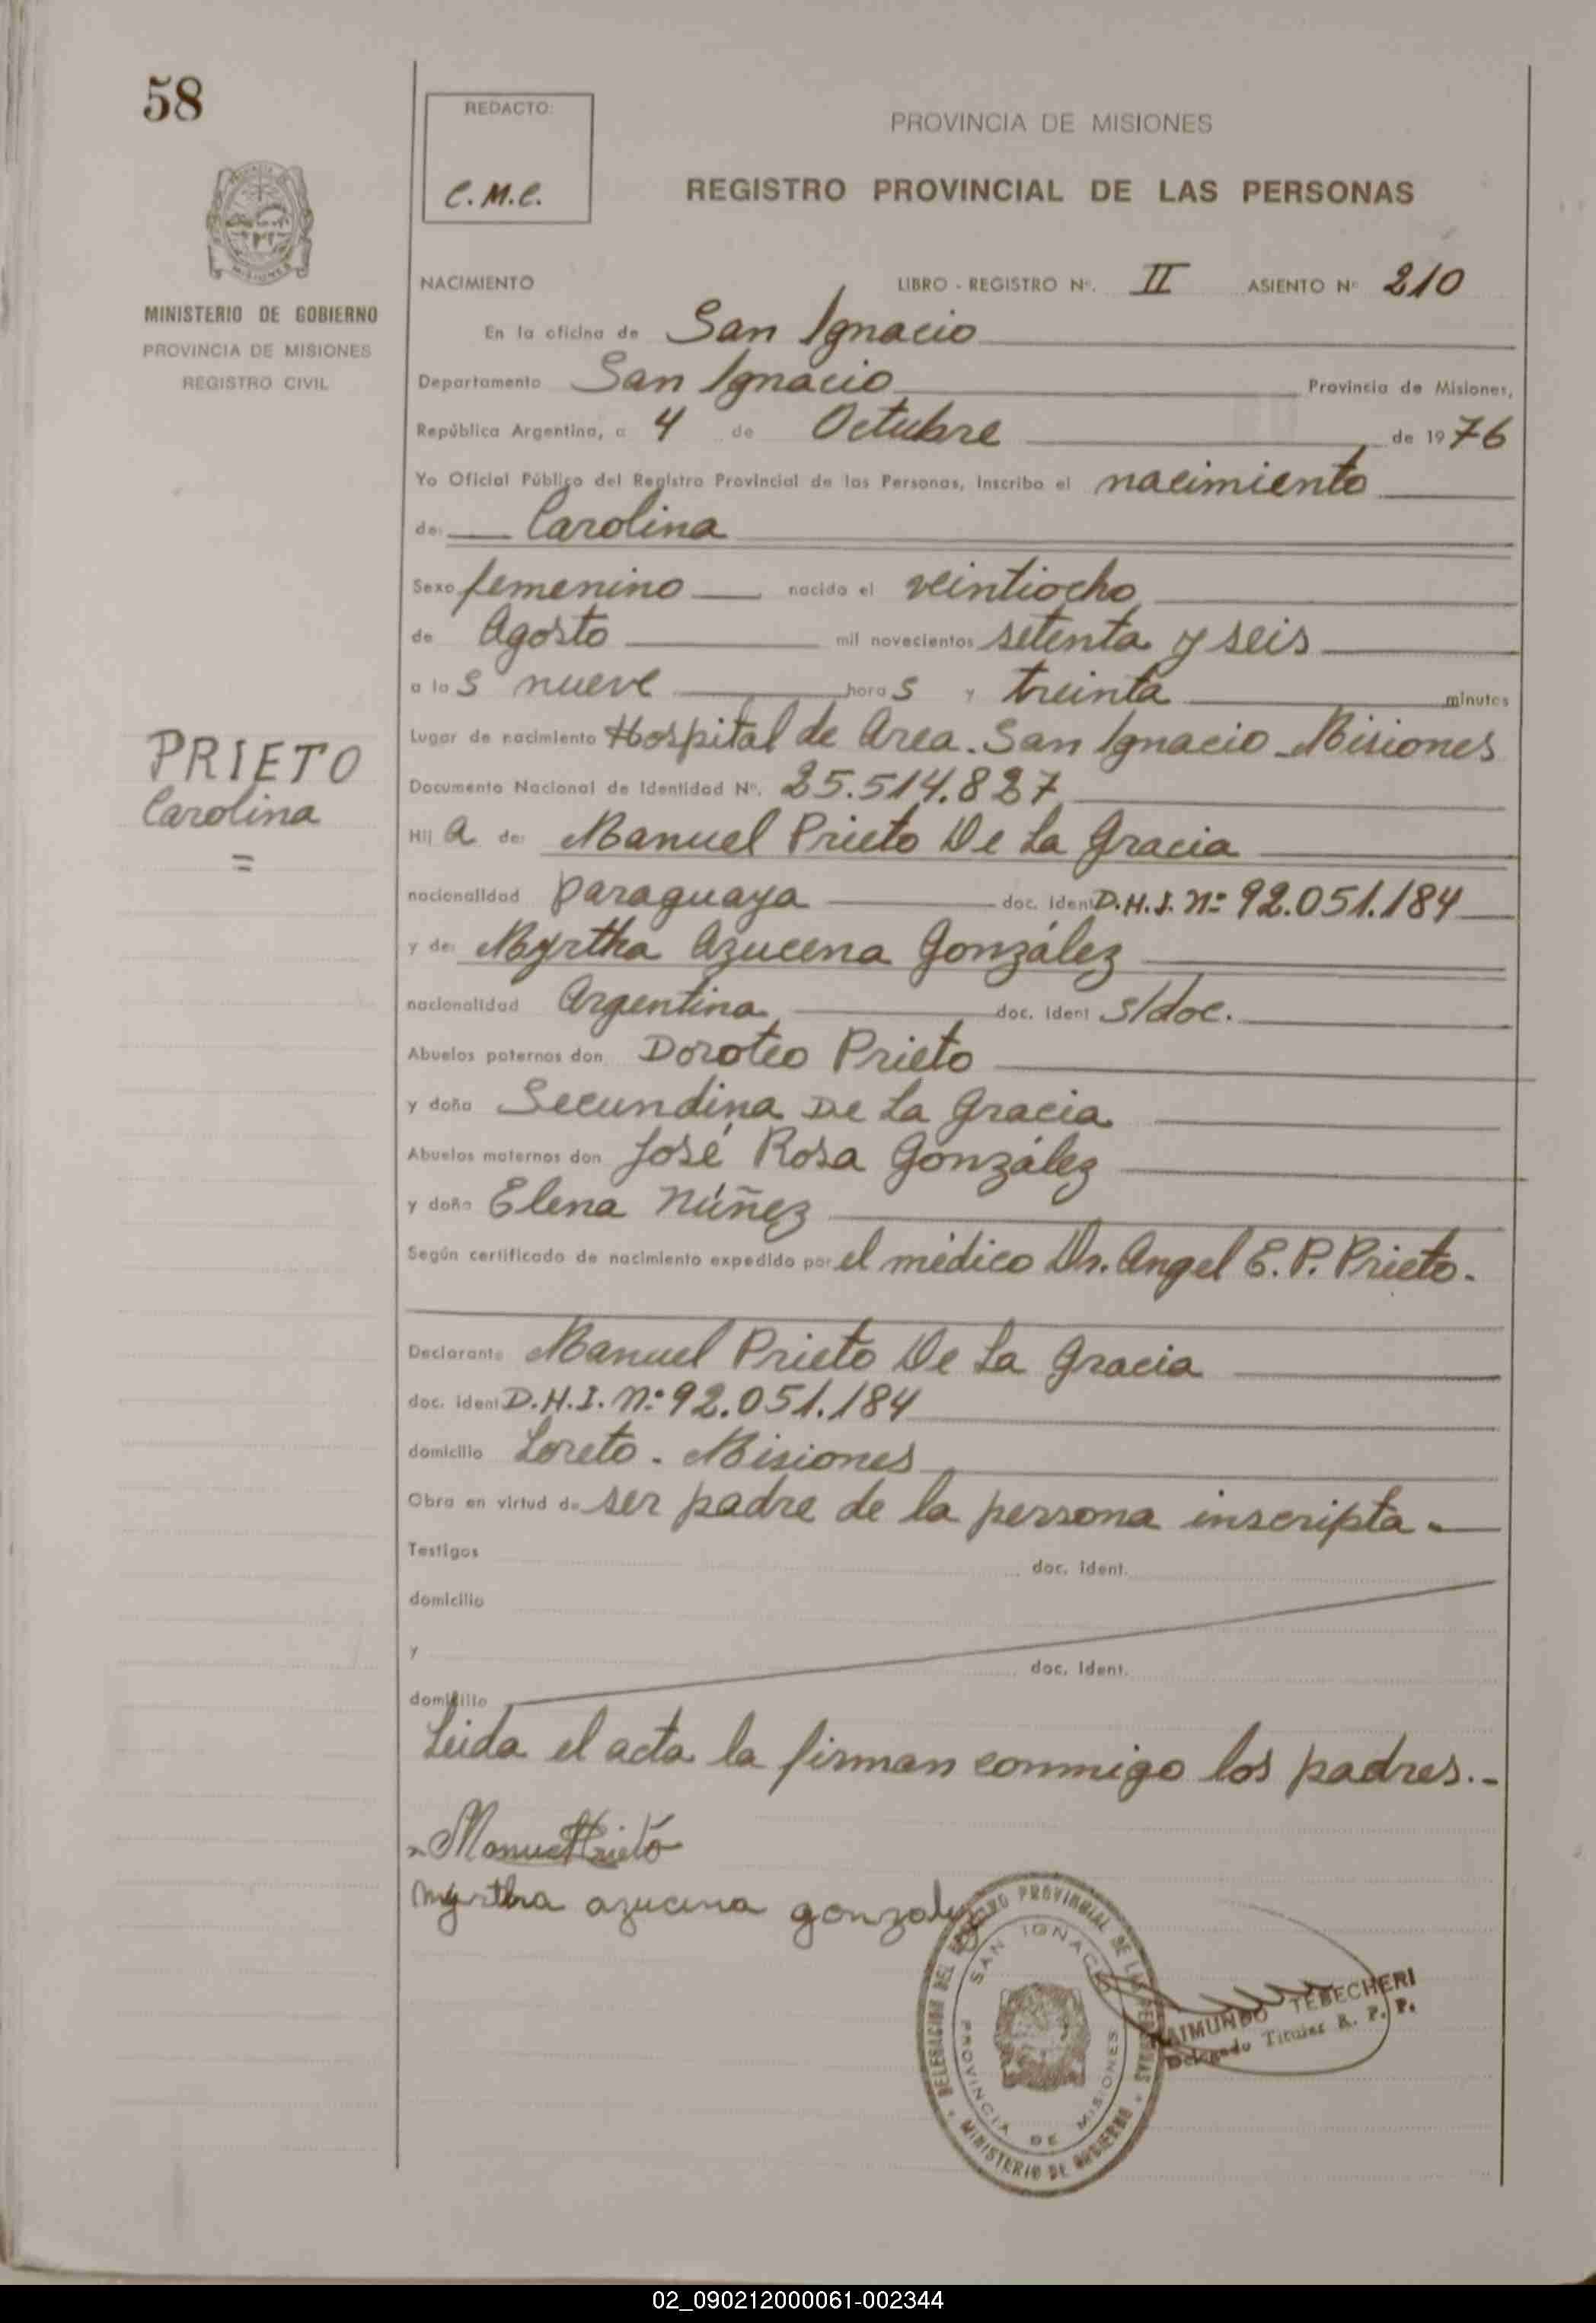 58
REDACTO:
C.M.C.
PROVINCIA DE MISIONES
REGISTRO PROVINCIAL DE LAS PERSONAS
MINISTERIO DE GOBIERNO
PROVINCIA DE MISIONES
REGISTRO CIVIL
NACIMIENTO LIBRO - REGISTRO Nº. II ASIENTO Nº 210
En la oficina de San Ignacio
Departamento San Ignacio Provincia de Misiones,
República Argentina, a 4 de Octubre de 1976
Yo Oficial Público del Registro Provincial de las Personas, inscribo el nacimiento
de: Carolina
Sexo femenino nacido el veintiocho
de Agosto mil novecientos setenta y seis
a las nueve horas y treinta minutos
Lugar de nacimiento Hospital de Area. San Ignacio - Misiones
PRIETO
Carolina
=
Documento Nacional de Identidad Nº. 25.514.827
Hija de: Manuel Prieto De La Gracia
nacionalidad paraguaya doc. ident D.H.I. nº 92.051.184
y de: Myrtha Azucena González
nacionalidad Argentina doc. ident s/doc.
Abuelos paternos don Doroteo Prieto
y doña Secundina De La Gracia
Abuelos maternos don José Rosa González
y doña Elena Núñez
Según certificado de nacimiento expedido por el médico Dr. Angel E. P. Prieto.
Declarante Manuel Prieto De La Gracia
doc. ident D.H.I. nº 92.051.184
domicilio Loreto. Misiones
Obra en virtud de ser padre de la persona inscripta.
Testigos doc. ident.
domicilio
y doc. ident.
domicilio
Leida el acta la firman conmigo los padres.-
Manuel Prieto
Myrtha azucena gonzalez
DELEGACION DEL REGISTRO PROVINCIAL DE LAS PERSONAS
SAN IGNACIO
PROVINCIA DE MISIONES
MINISTERIO DE GOBIERNO
RAIMUNDO TEBECHERI
Delegado Titular R. P. P.
02_090212000061-002344